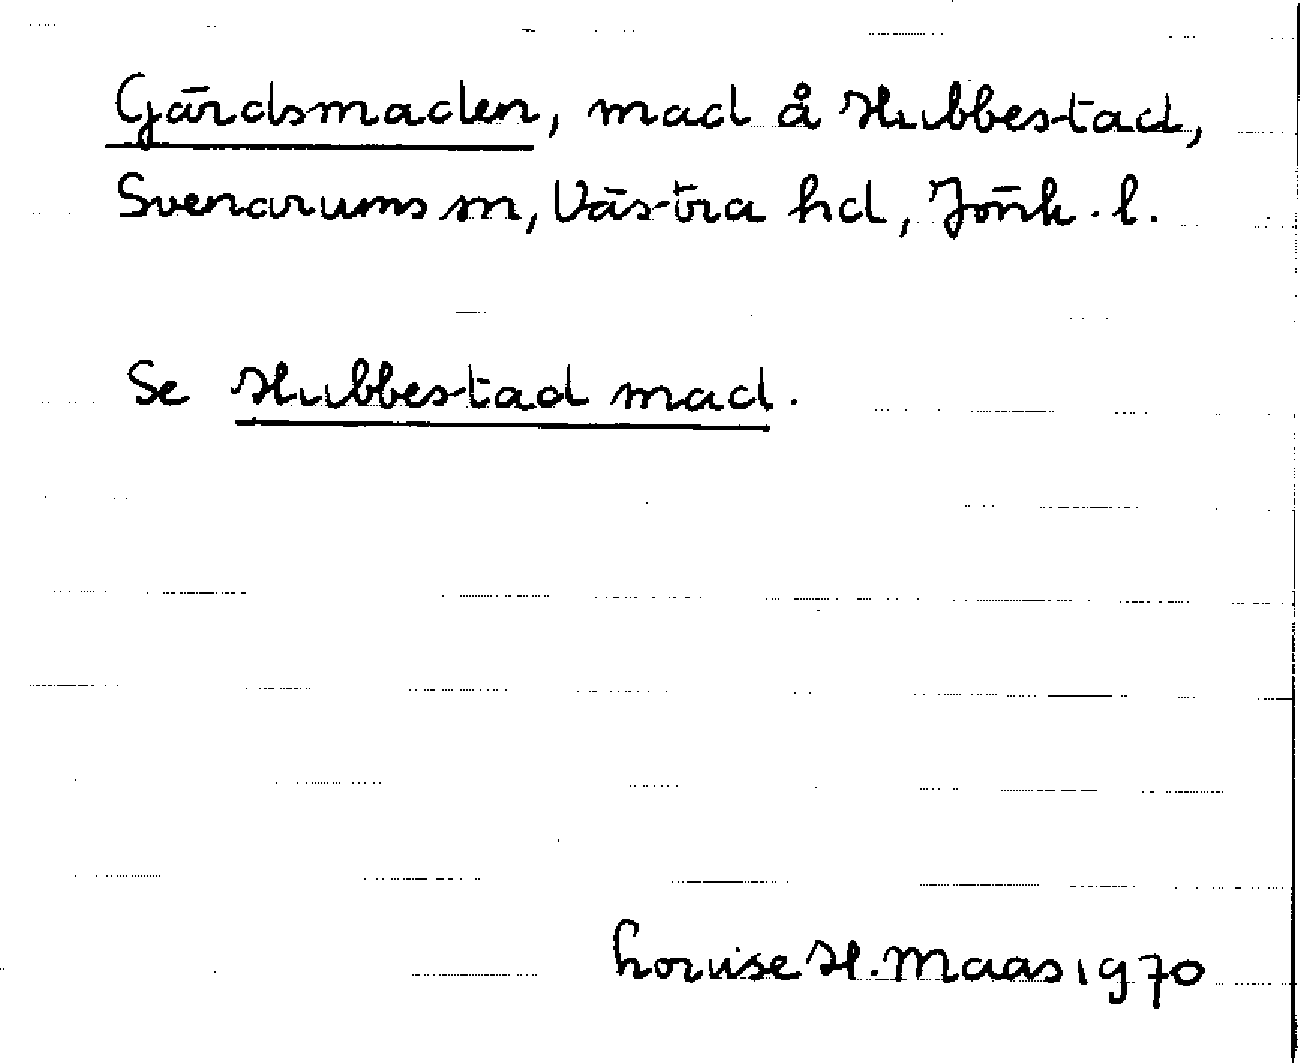 Gärdsmaden, mad å Hubbestad,
Svenarums sn, Västra hd, Jönk. l.
Se Hubbestad mad.
Louise H. Maas 1970